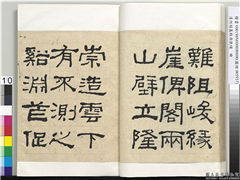 難阻峻緣
崖俾閣兩
山壁立隆
崇造雲下
有不測之
谿淵促
10